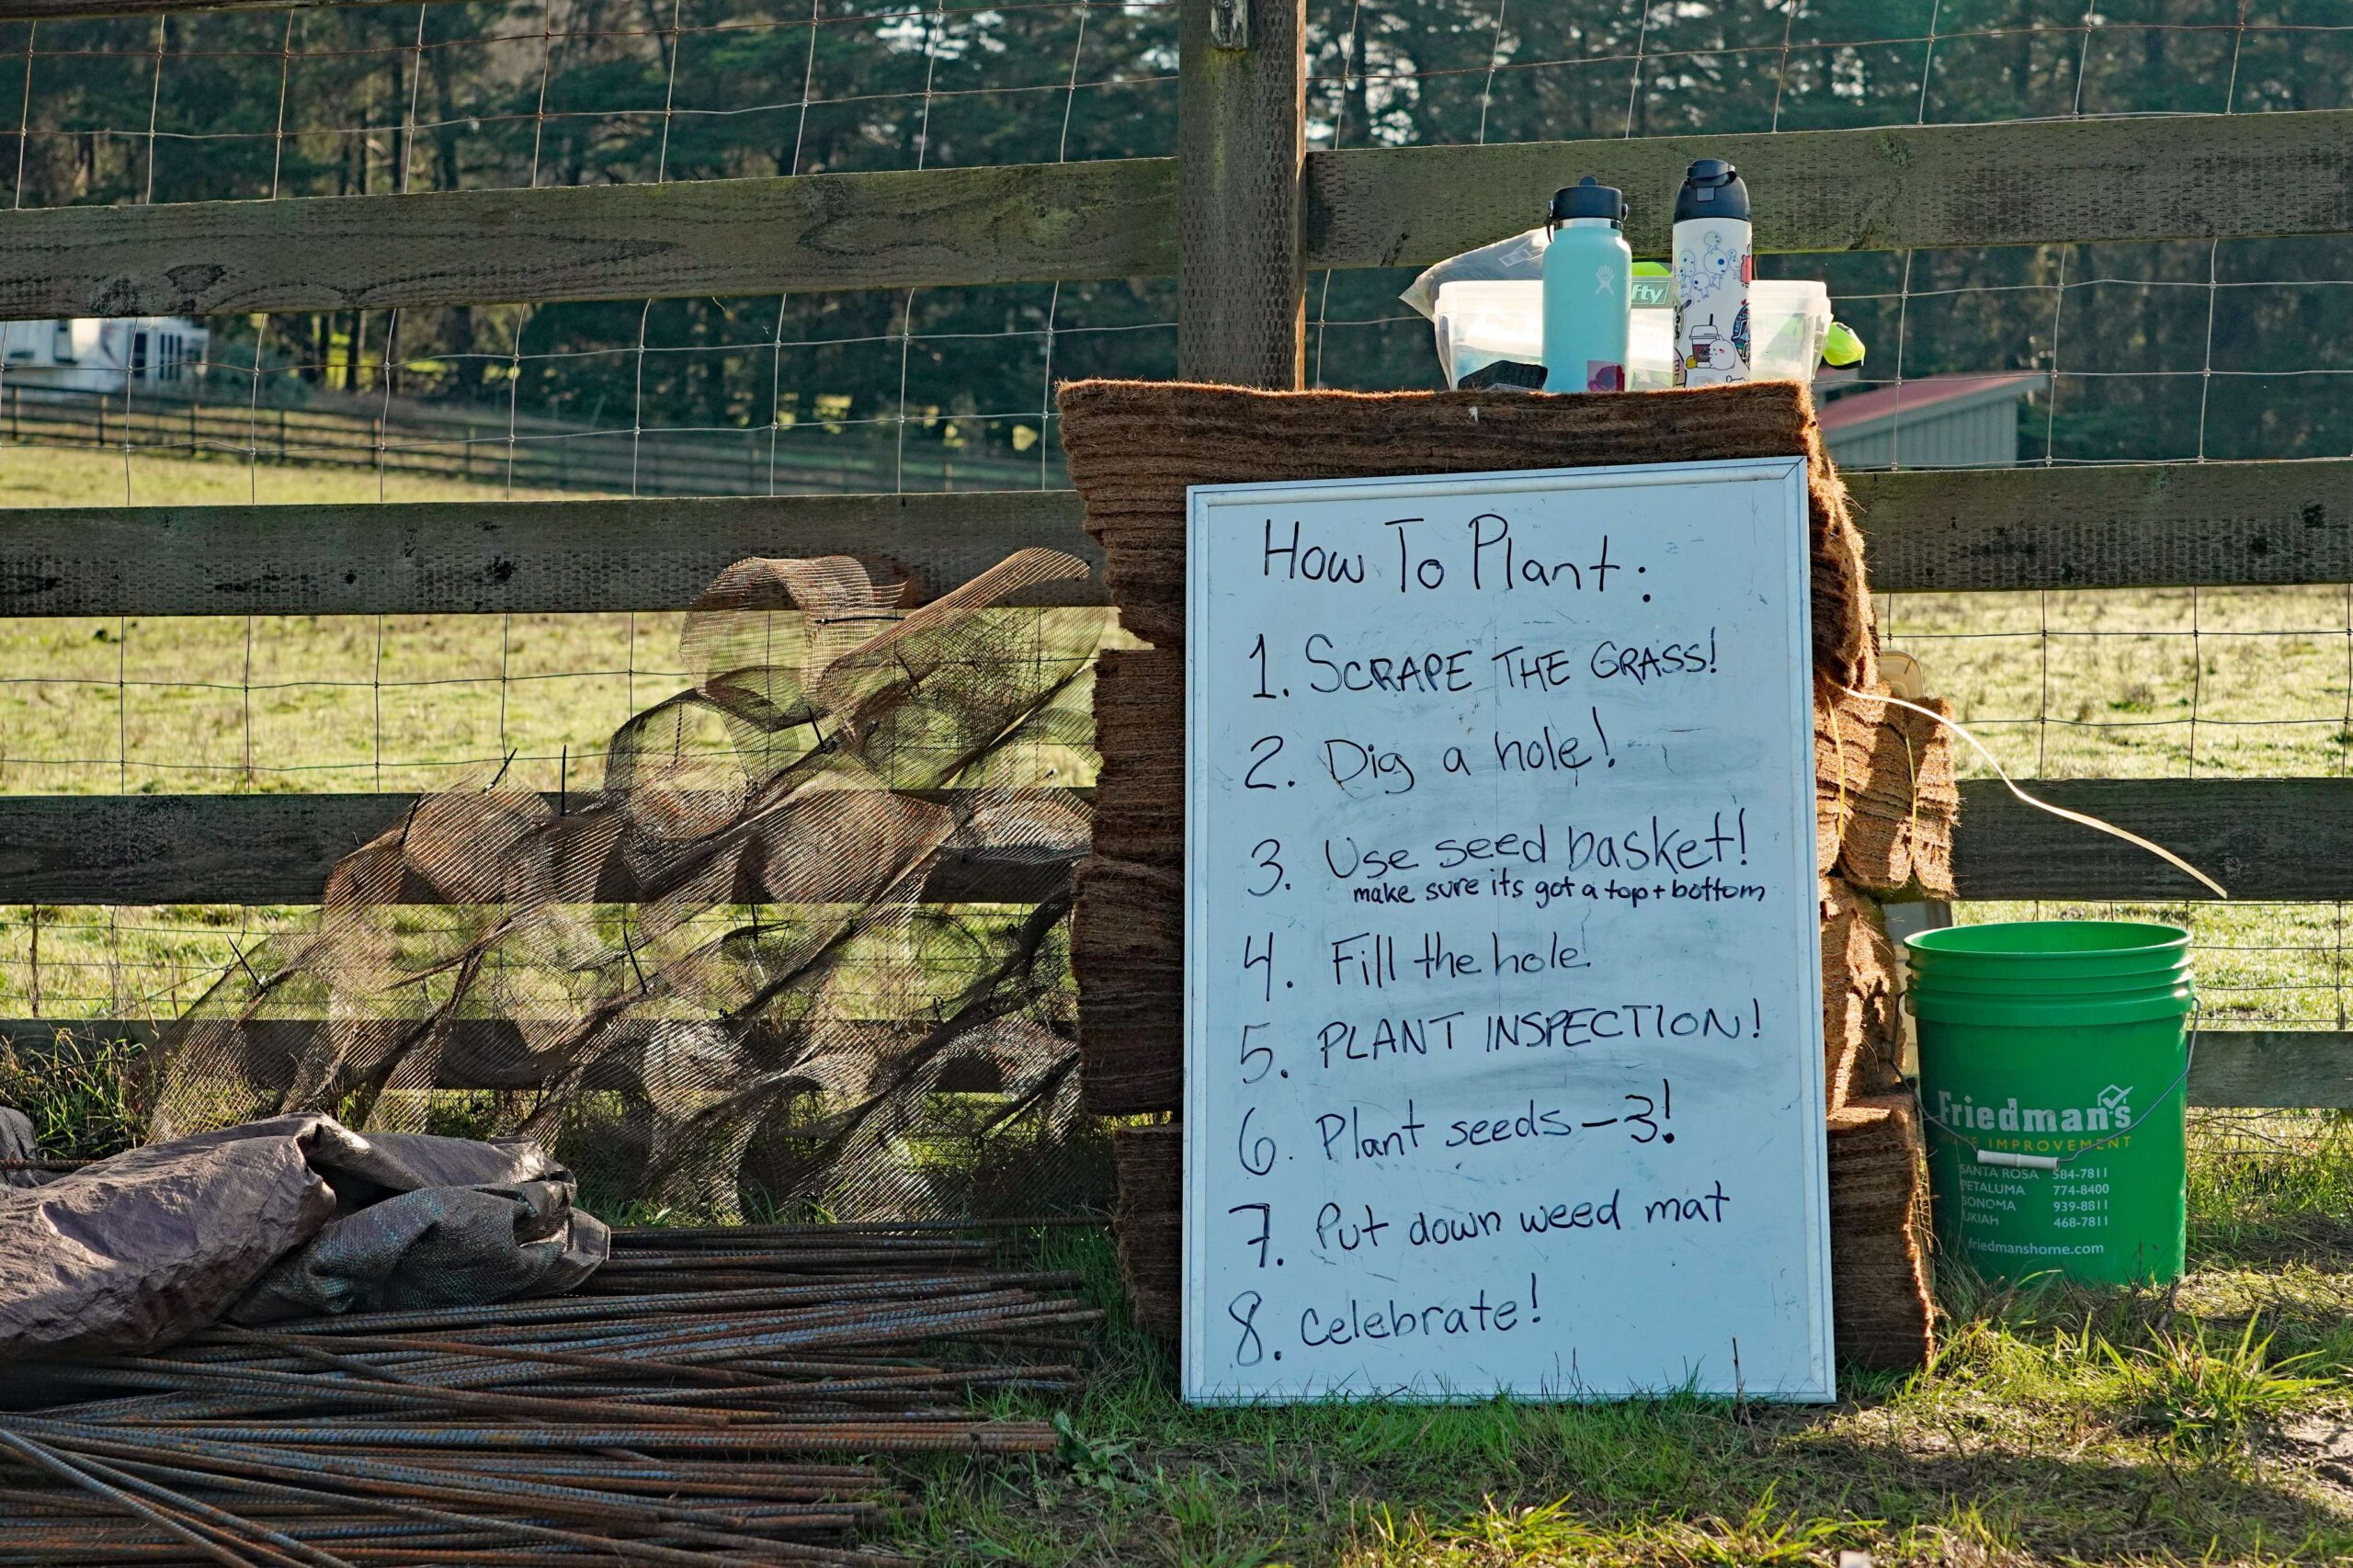 fty
How To Plant:
1. SCRAPE THE GRASS!
2. Dig a hole!
3. Use seed basket!
make sure its got a top + bottom
4. Fill the hole!
5. PLANT INSPECTION!
6. Plant seeds - 3!
7. Put down weed mat
8. Celebrate!
Friedman's
IMPROVEMENT
SANTA ROSA 584-7811
PETALUMA 774-8400
SONOMA 939-8811
UKIAH 468-7811
friedmanshome.com